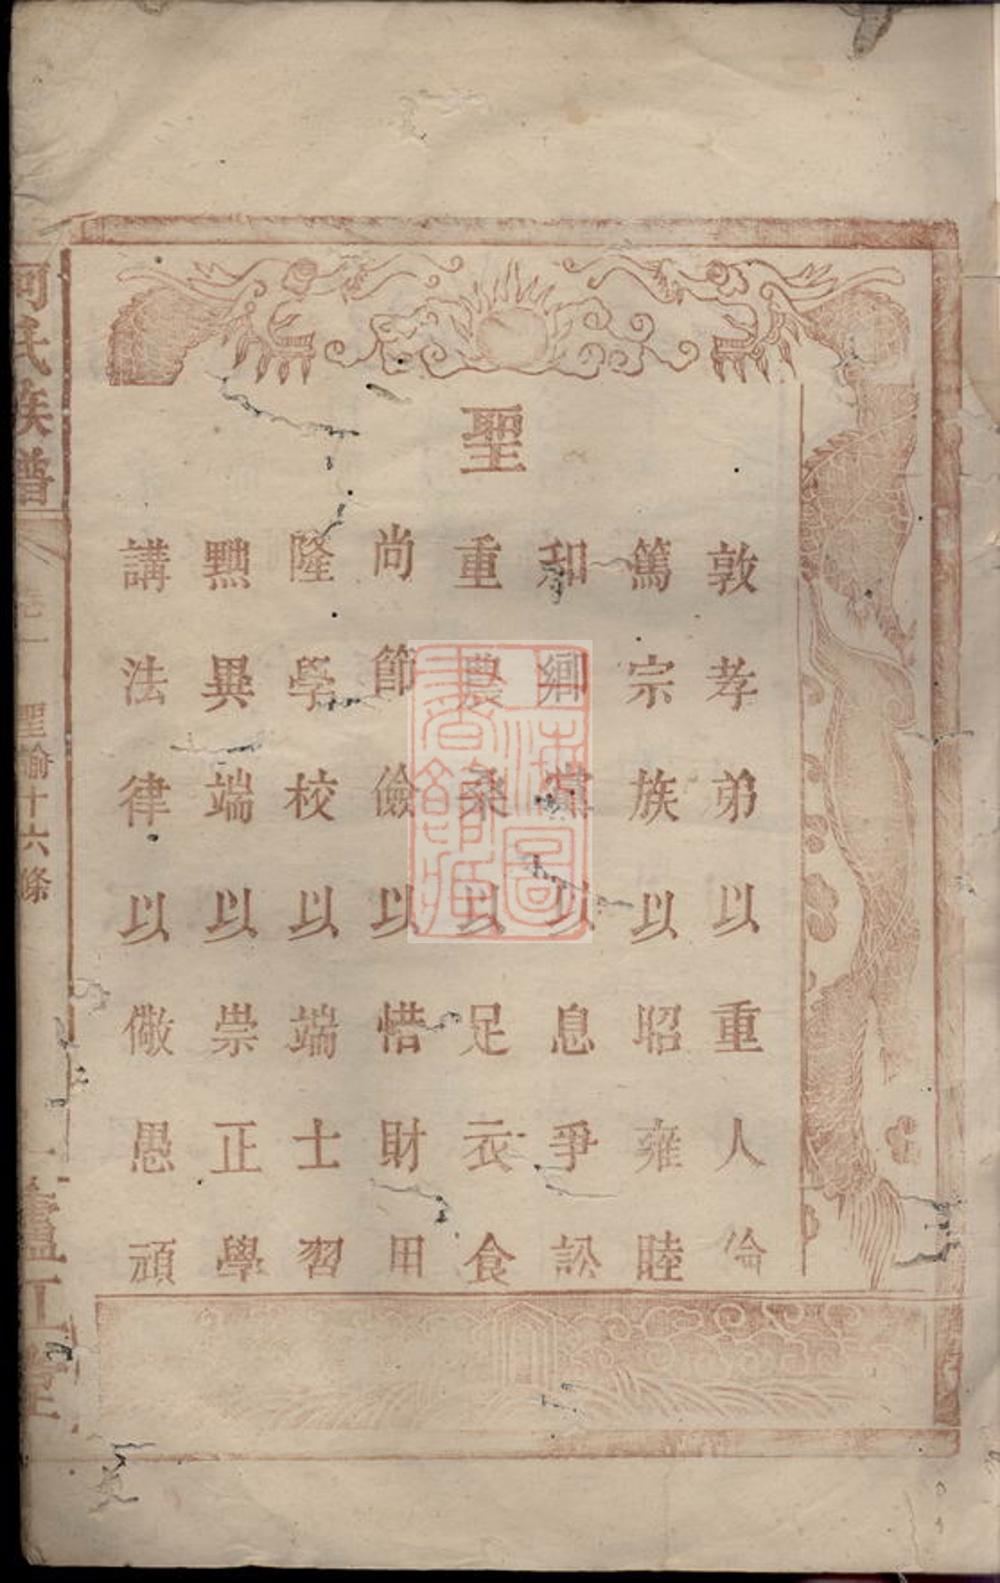 聖
敦孝弟以重人倫
篤宗族以昭雍睦
和鄉黨以息爭訟
重農桑以足衣食
尚節儉以惜財用
隆學校以端士習
黜異端以崇正學
講法律以儆愚頑
何氏族譜
卷二
聖諭十六條
一
廬江堂
上海圖書館藏